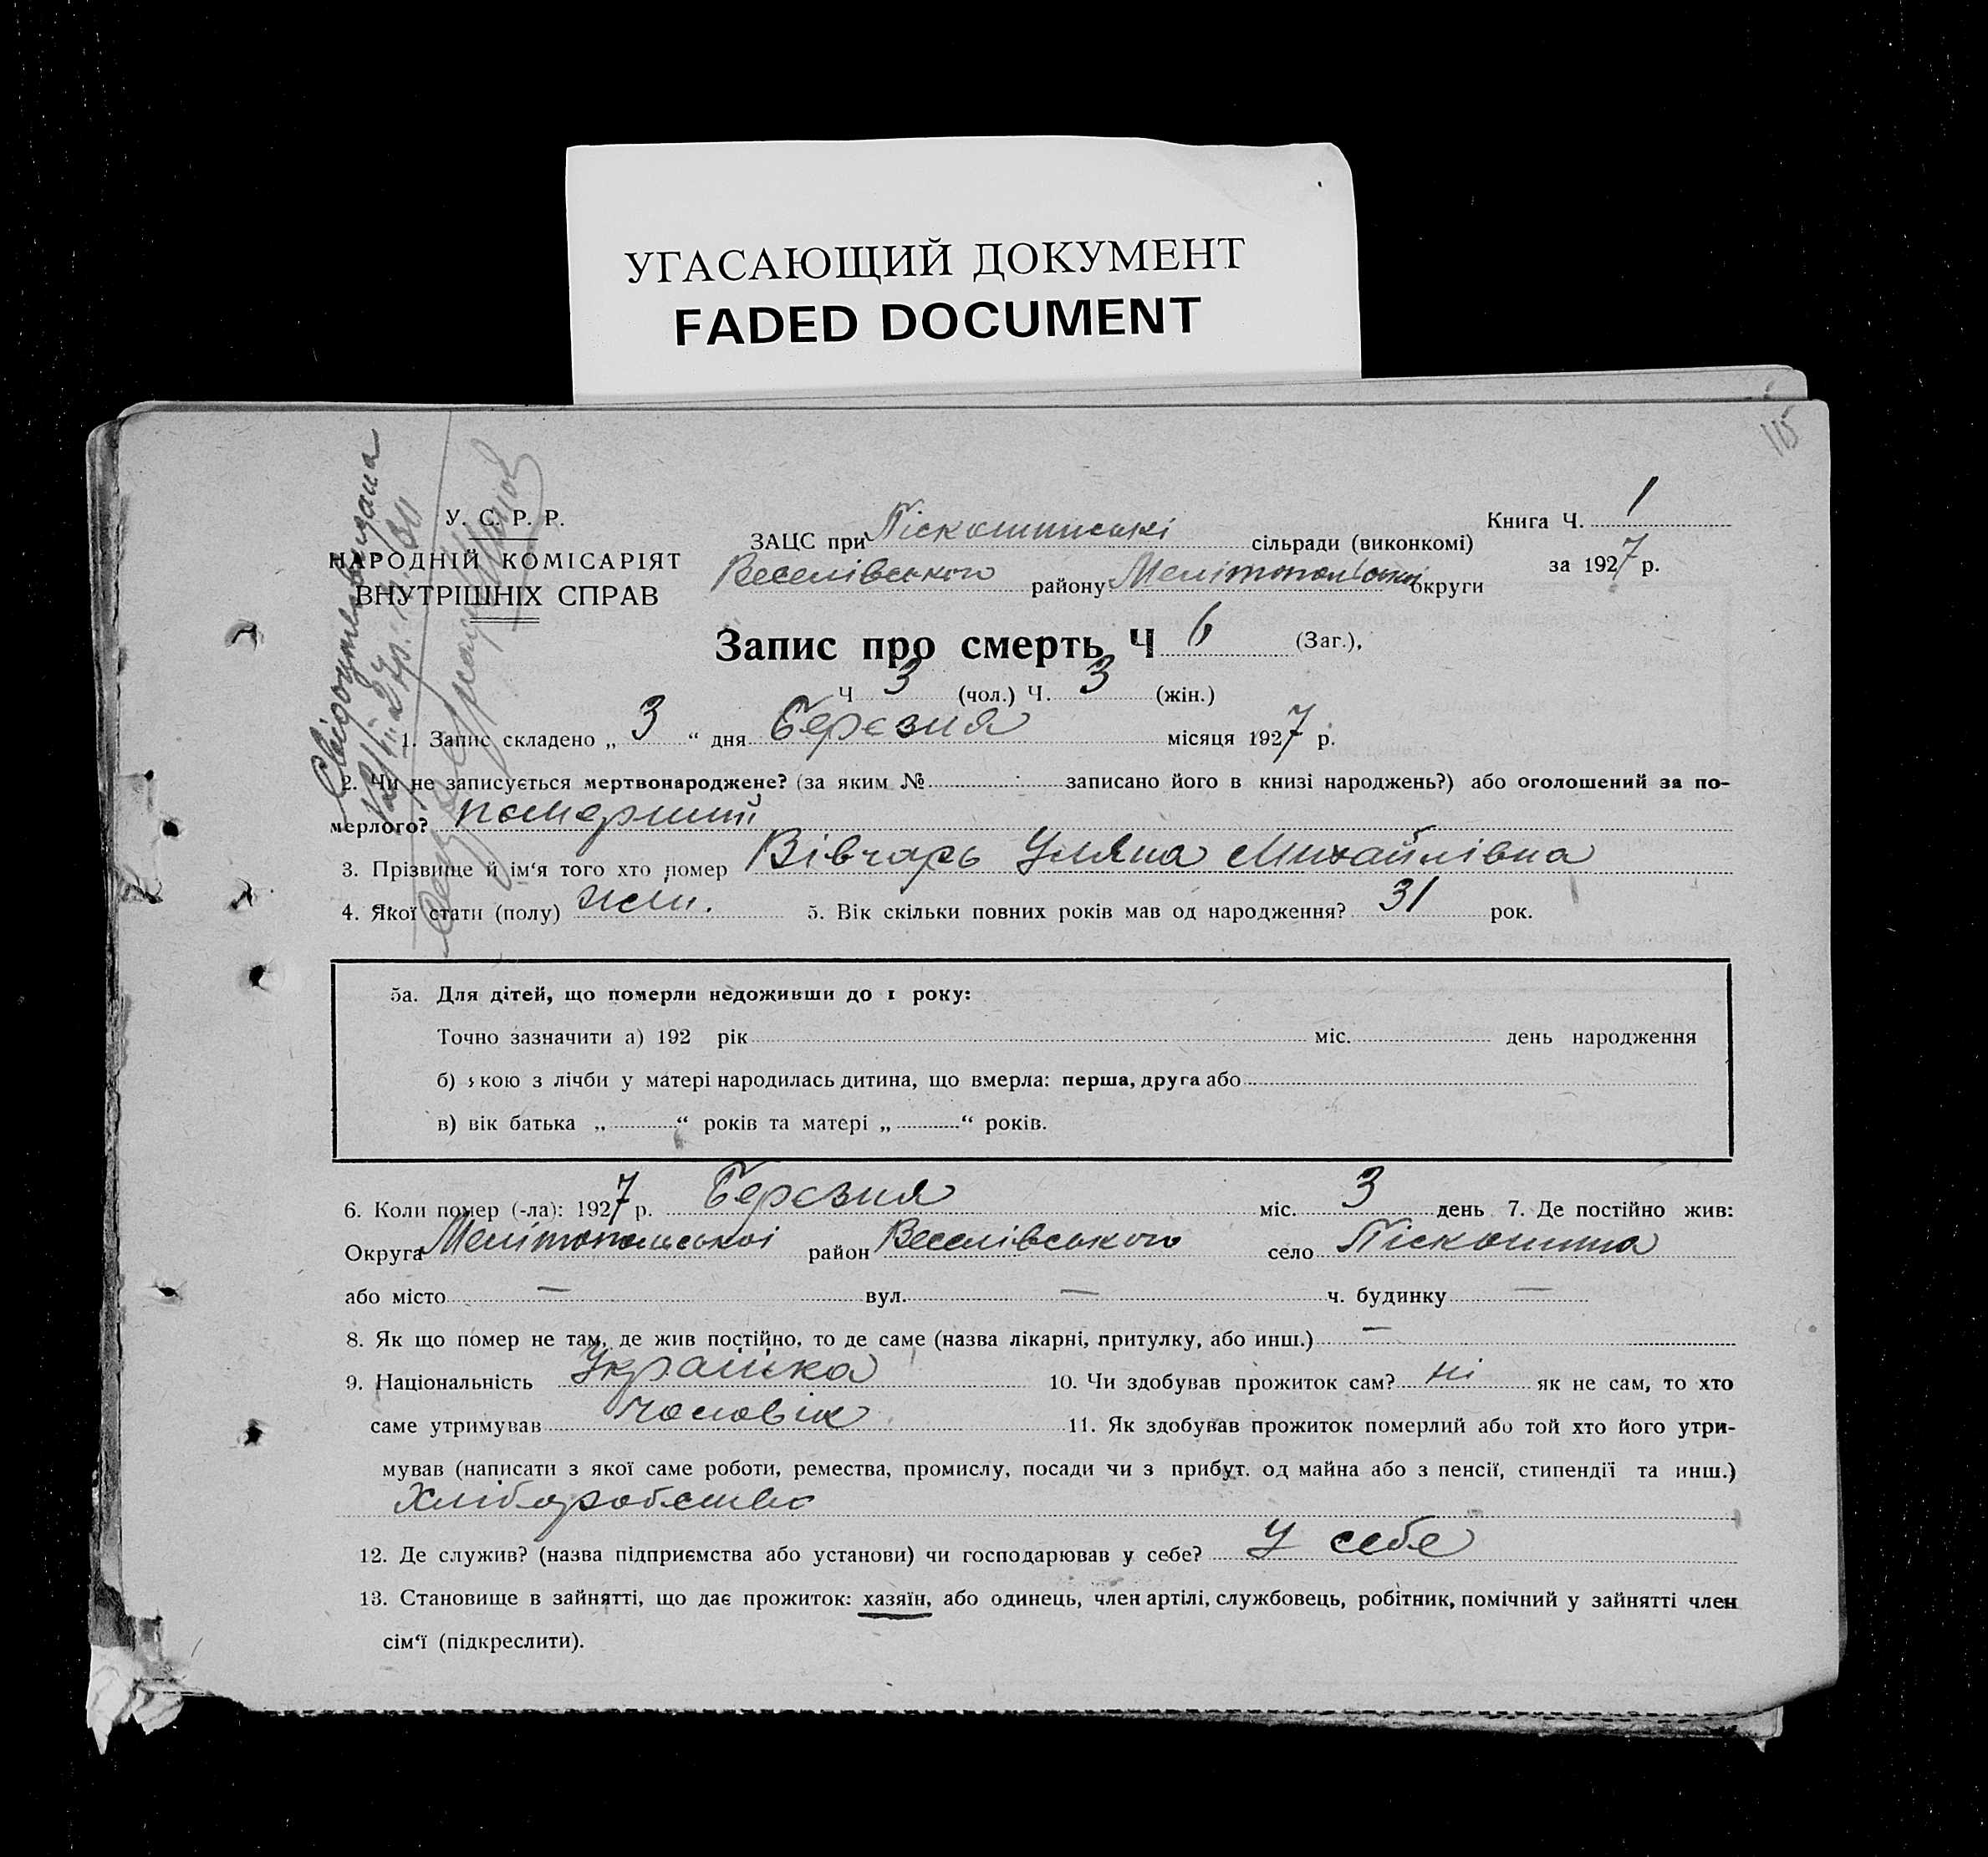 УГАСАЮЩИЙ ДОКУМЕНТ
FADED DOCUMENT
115
У. С. Р. Р.
НАРОДНІЙ КОМІСАРІЯТ
ВНУТРІШНІХ СПРАВ
Свідоцтво видана
Книга Ч. 1
за 1927 р.
ЗАЦС при Піскошинські сільради (виконкомі)
Веселівського району Мелітопольської округи
Запис про смерть Ч 6 (Заг.),
Ч 3 (чол.) Ч. 3 (жін.)
1. Запис складено „ 3 “ дня Березня місяця 1927 р.
2. Чи не записується мертвонароджене? (за яким № записано його в книзі народжень?) або оголошений за по-
мерлого? померший
3. Прізвище й ім‘я того хто помер Вівчарь Уляна Михайлівна
4. Якої стати (полу) жін. 5. Вік скільки повних років мав од народження? 31 рок.
5а. Для дітей, що померли недоживши до 1 року:
Точно зазначити а) 192 рік міс. день народження
б) якою з лічби у матері народилась дитина, що вмерла: перша, друга або
в) вік батька „ “ років та матері „ “ років.
6. Коли помер (-ла): 1927 р. Березня міс. 3 день 7. Де постійно жив:
Округа Мелітопольської район Веселівського село Піскошина
або місто — вул. — ч. будинку —
8. Як що помер не там, де жив постійно, то де саме (назва лікарні, притулку, або инш.) —
9. Національність Українка 10. Чи здобував прожиток сам? ні як не сам, то хто
саме утримував чоловік 11. Як здобував прожиток померлий або той хто його утри-
мував (написати з якої саме роботи, ремества, промислу, посади чи з прибут. од майна або з пенсії, стипендії та инш.)
Хліборобство
12. Де служив? (назва підприємства або установи) чи господарював у себе? У себе
13. Становище в зайнятті, що дає прожиток: хазяїн, або одинець, член артілі, службовець, робітник, помічний у зайнятті член
сім‘ї (підкреслити).